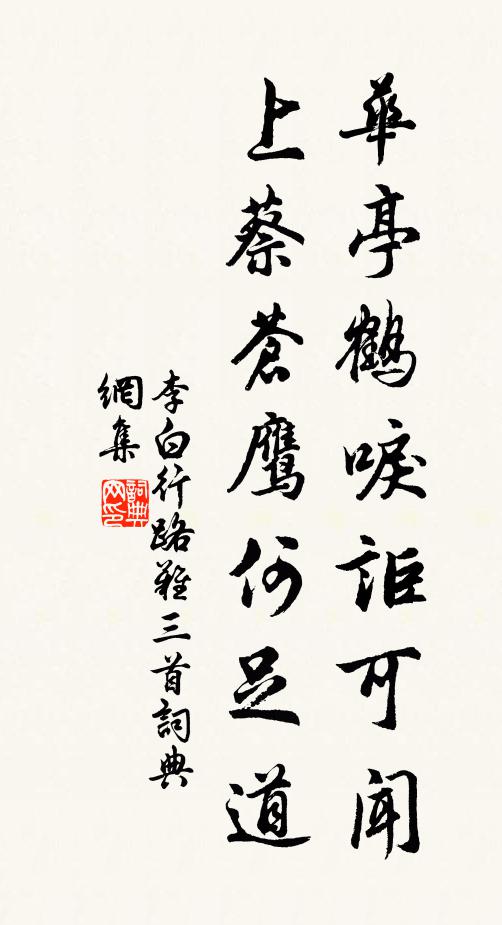 華亭鶴唳詎可聞
上蔡蒼鷹何足道
李白行路難三首詞典
網集
詞典
网印